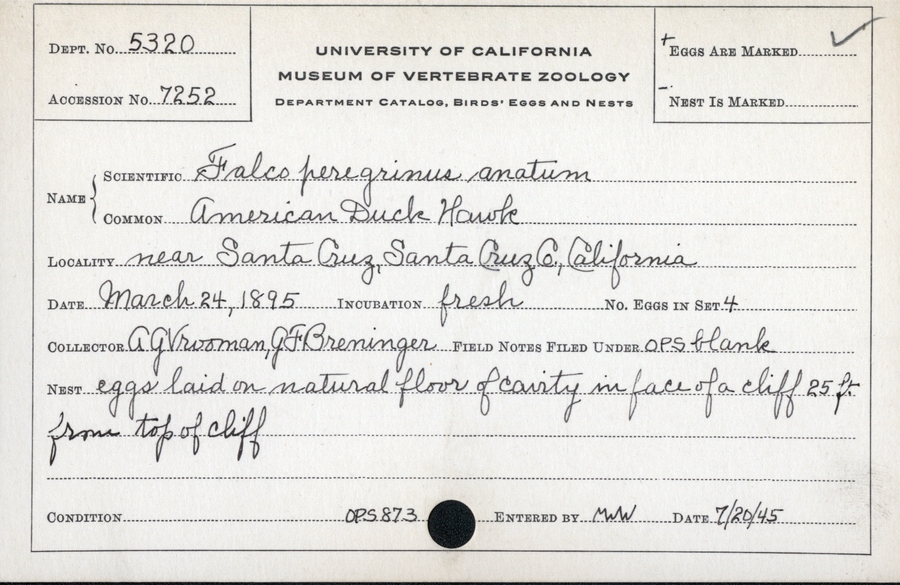 Dept. No. 5320
Accession No. 7252
UNIVERSITY OF CALIFORNIA
MUSEUM OF VERTEBRATE ZOOLOGY
Department Catalog, Birds' Eggs and Nests
+ Eggs Are Marked ✓
- Nest Is Marked
Name { Scientific Falco peregrinus anatum
Common American Duck Hawk
Locality near Santa Cruz, Santa Cruz Co., California
Date March 24, 1895 Incubation fresh No. Eggs in Set 4
Collector A G Vrooman, G F Breninger Field Notes Filed Under OPS blank
Nest eggs laid on natural floor of cavity in face of a cliff 25 ft.
from top of cliff
Condition OPS 873 Entered by MWW Date 7/20/45